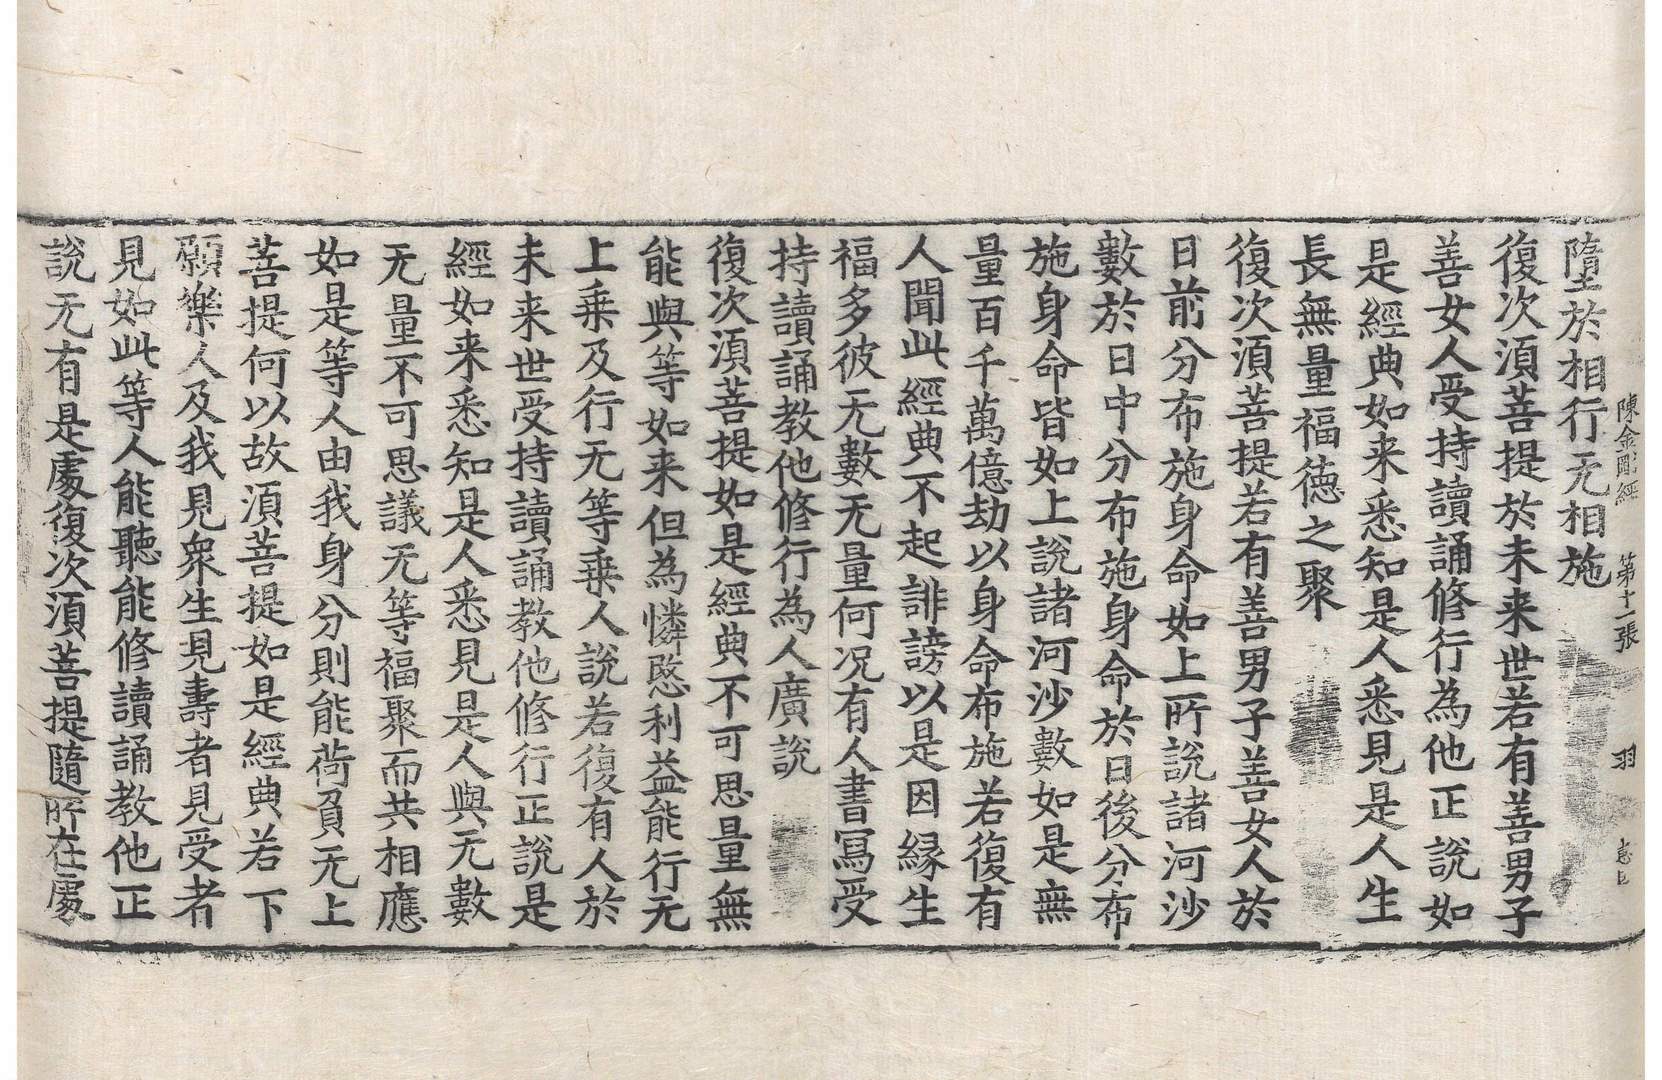 陳金剛經　第十一張　羽
墮於相行无相施
復次湏菩提於未来世若有善男子
善女人受持讀誦修行為他正說如
是經典如来悉知是人悉見是人生
長無量福德之聚
復次湏菩提若有善男子善女人於
日前分布施身命如上所說諸河沙
數於日中分布施身命於日後分布
施身命皆如上說諸河沙數如是無
量百千萬億劫以身命布施若復有
人聞此經典不起誹謗以是因緣生
福多彼无數无量何況有人書寫受
持讀誦教他修行為人廣說
復次湏菩提如是經典不可思量無
能與等如来但為憐愍利益能行无
上乗及行无等乗人說若復有人於
未来世受持讀誦教他修行正說是
經如来悉知是人悉見是人與无數
无量不可思議无等福聚而共相應
如是等人由我身分則能荷負无上
菩提何以故湏菩提如是經典若下
願樂人及我見衆生見壽者見受者
見如此等人能聽能修讀誦教他正
說无有是處復次湏菩提隨所在處